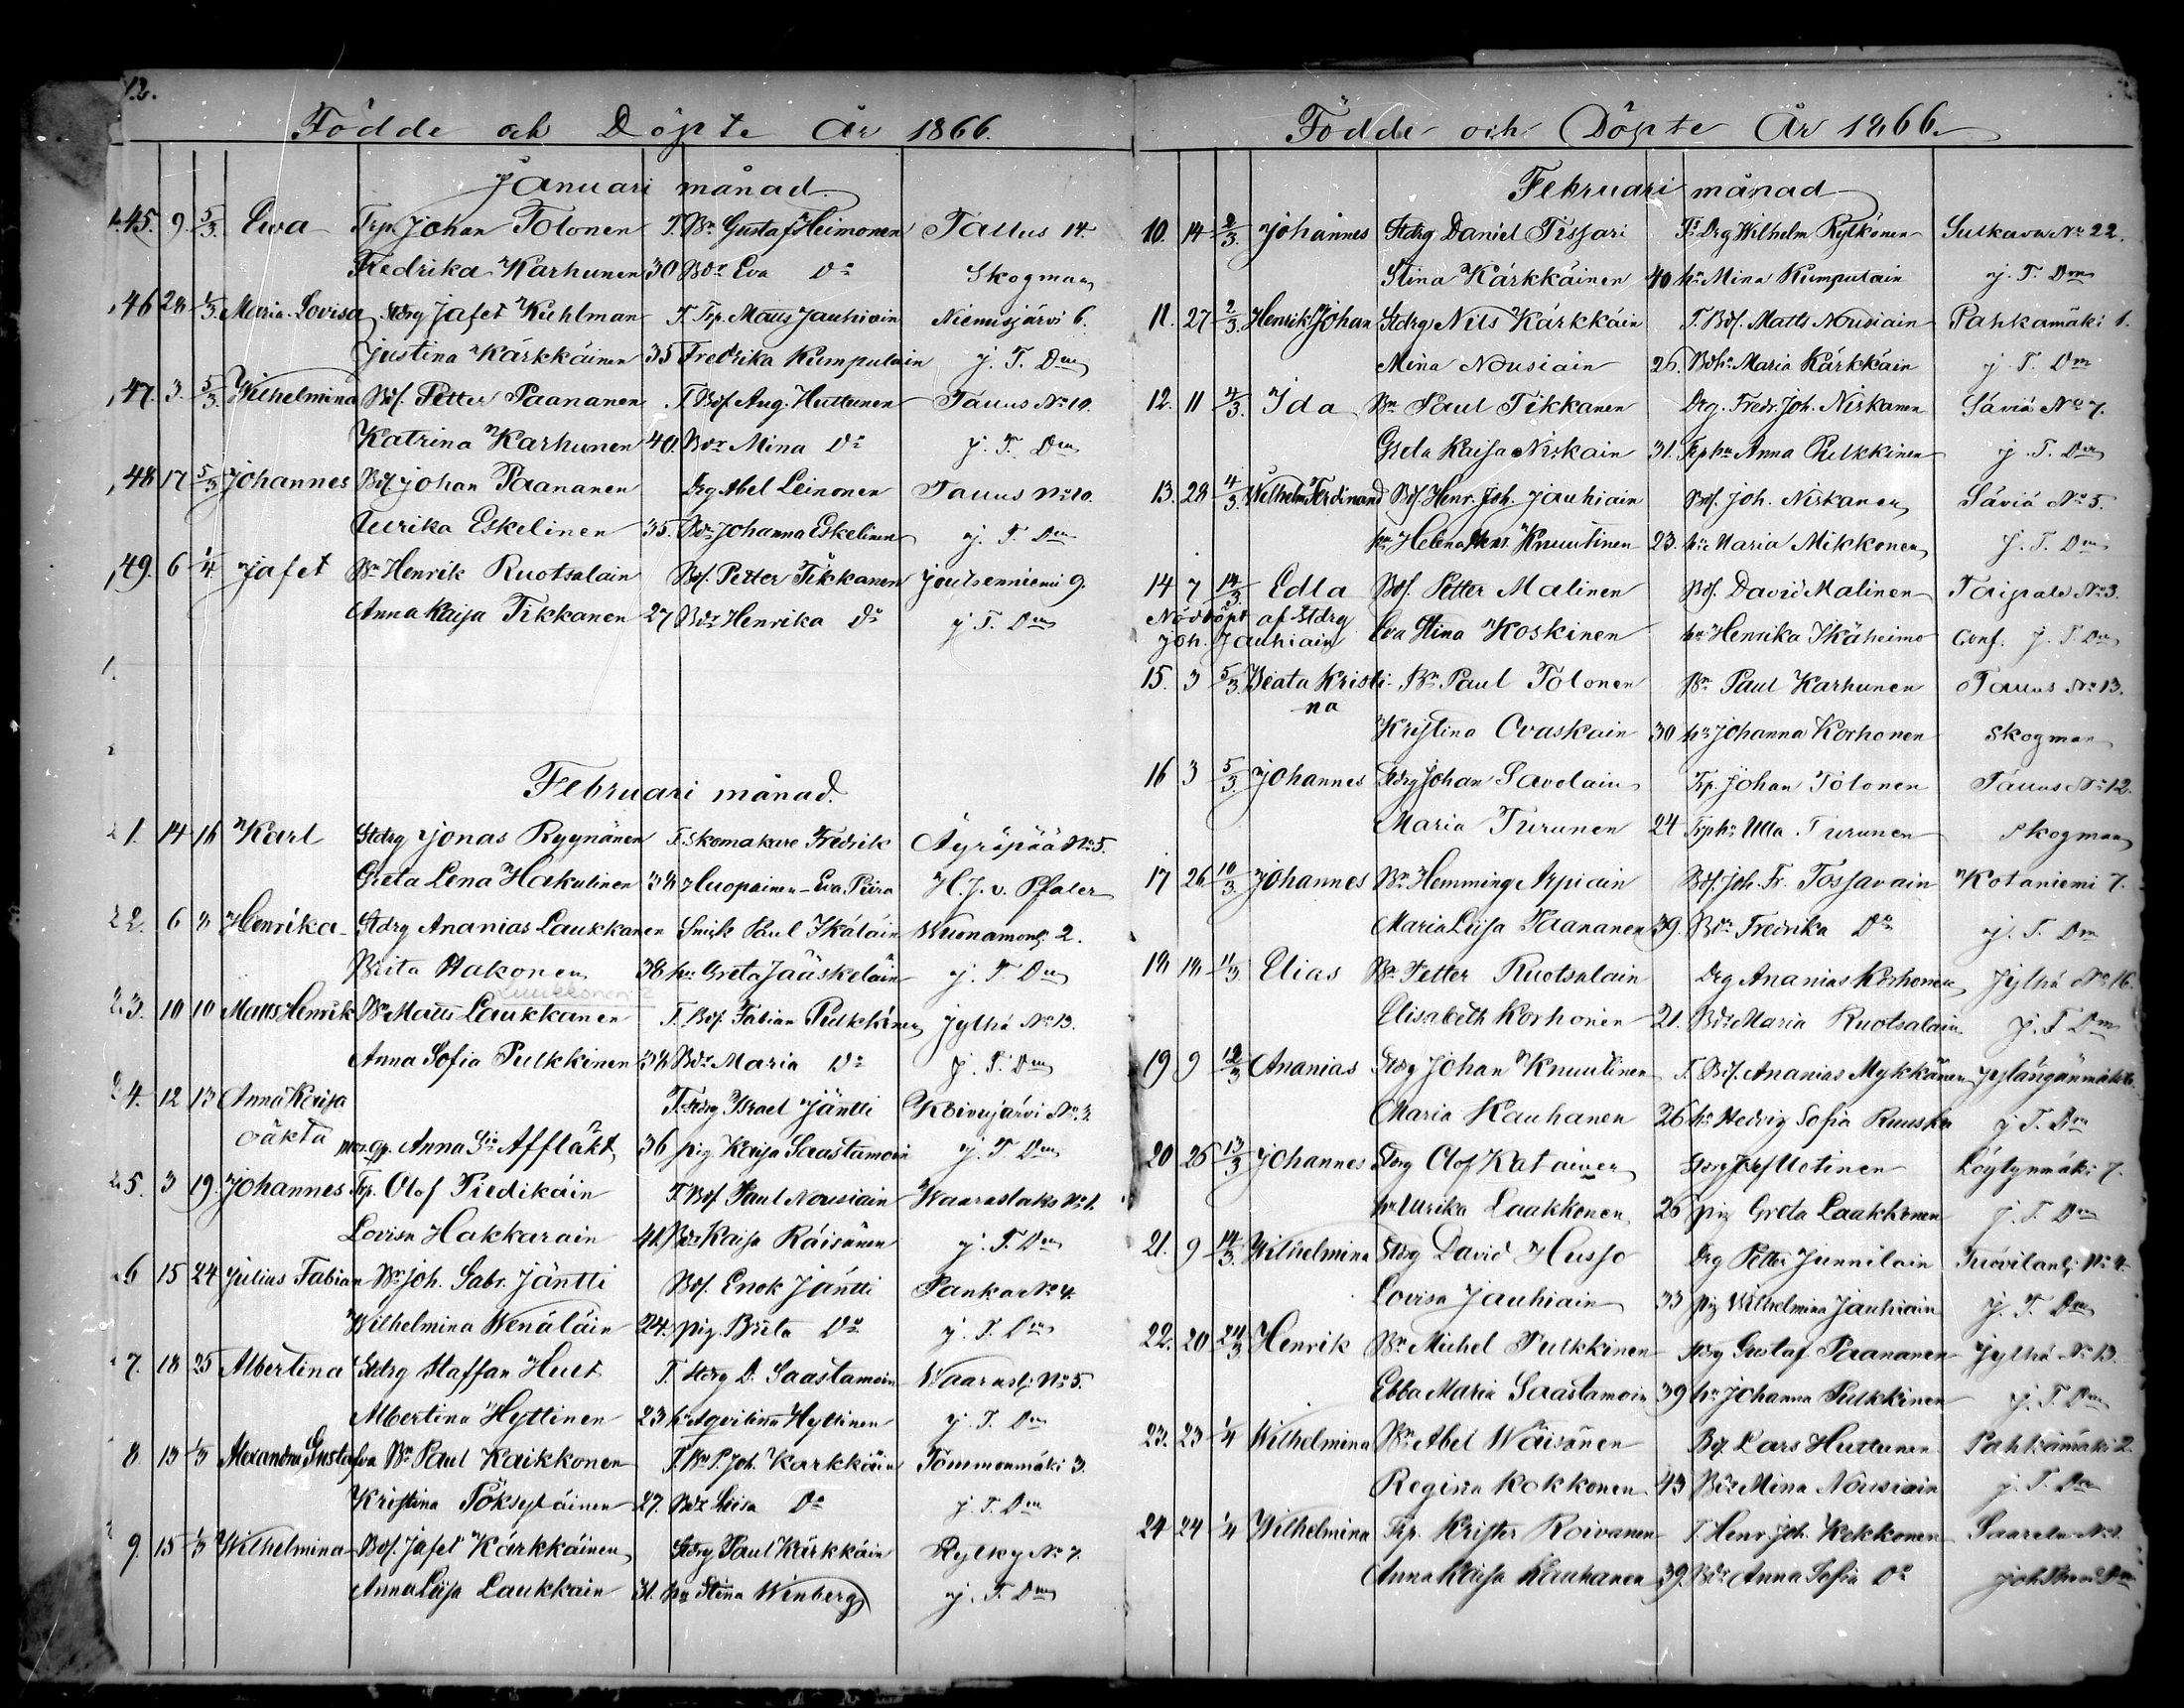 12.
Födde och Döpte År 1866.
Januari månad.
45. 9. 5/3. Ewa Trp. Johan Tolonen T. Bn Gustaf Heimonen Tallus 14.
Fredrika Karhunen 30 Bdr Eva Do Skogman
46 28 1/3. Maria Lovisa Stdrg Jafet Kuhlman T. Trp. Matts Jauhiain Niemisjärvi 6.
Justina Kärkkäinen 35 Fredrika Kumpulain j. T. Dm
47. 3. 5/3. Wilhelmina Bdf. Petter Paananen T Bdf. Aug. Huttunen Tallus No 10.
Katrina Karhunen 40. Bdr Mina Do j. T. Dm
48 17 5/3 Johannes Bdf Johan Paananen Drg Abel Leinonen Tallus No 10.
Ulrika Eskelinen 35. Bdr Johanna Eskelinen j. T. Dm
49. 6 1/4. Jafet Bn Henrik Ruotsalain Bdf. Petter Tikkanen Joutsenniemi 9.
Anna Kaisa Tikkanen 27 Bdr Henrika Do j T. Dm
Februari månad.
1. 14 16 Karl Stdrg Jonas Ryynänen T. Skomakare Fredrik Äyräpää No 5.
Greta Lena Hakulinen 34 Huopainen - Eva Piira H. J. v. Pfaler
2. 6 8 Henrika Stdrg Ananias Laukkanen Smish Paul Ikäläin Wuonamonlj. 2.
Brita Hakonen 38 hu Greta Jääskeläin j. T. Dm
Luukkonen
3. 10 10 Matts Henrik Bn Matts Laukkanen T. Bdf. Fabian Pulkkinen Jylhä No 13.
Anna Sofia Pulkkinen 34 Bdr Maria Do j. T. Dm
4. 12 13 Anna Kaisa T. Stdrg Israel Jäntti Koivujärvi No 3.
oäkta mor. qp. Anna Sia Affläkt 36 pig Kaisa Saastamoin j. T. Dm
5. 3 19. Johannes Trp. Olof Tiedikäin T. Bdf. Paul Nousiain Waaraslaks No 1.
Lovisa Hakkarain 41. Bdr Kaisa Räisänen j. T. Dm
6 15 24 Julius Fabian Bn Joh. Gabr. Jäntti Bdf. Enok Jäntti Panka No 4.
Wilhelmina Wenäläin 24. pig. Brita Do j. T. Dm
7. 18 25 Albertina Stdrg Staffan Hult T. Stdrg D. Saastamoin Waaraslj No 5.
Albertina Hyttinen 23 hu Aqvilina Hyttinen j. T. Dm
8. 13 1/3 Alexandra Gustafva Bn Paul Kaikkonen T. Bn P. Joh. Karkkäin Tommonmäki 3.
Kristina Pöksyläinen 27. Bdr Lisa Do j. T. Dm
9. 15 1/3 Wilhelmina Bdf. Jafet Kärkkäinen Stdrg Paul Kärkkäin Rylky No 7.
Anna Lisa Laukkain 31. hu Stina Winberg j. T. Dm
Födde och Döpte År 1866.
Februari månad
10. 14 2/3. Johannes Stdrg Daniel Tissari T. Drg Wilhelm Rylkönen Sulkava No 22.
Stina Kärkkäinen 40 hu Mina Kumpulain j. T. Dm
11. 27 2/3. Henrik Johan Stdrg Nils Kärkkäin T. Bdf. Matts Nousiain Pahkamäki 1.
Mina Nousiain 26. Bdhu Maria Kärkkäin j. T. Dm
12. 11 4/3. Ida Bn Paul Tikkanen Drg. Fredr. Joh. Niskanen Säviä No 7.
Greta Kaisa Niskain 31. Trphu Anna Pulkkinen j. T. Dm
13. 28 4/3. Wilhelm Ferdinand Bdf. Henr. Joh. Jauhiain Bdf. Joh. Niskanen Säviä No 5.
hu Helena Knuutinen 23. hu Maria Mikkonen J. T. Dm
14 7 14/3. Edla Bdf. Petter Malinen Bdf. David Malinen Taipale No 3.
Nöddöpt af Stdrg
Joh. Jauhiain Eva Stina Koskinen hu Henrika Ikäheimo Conf. J. T. Dm
15. 3 5/3 Beata Kristi- Bn Paul Tolonen Bn Paul Karhunen Tallus No 13.
na
Kristina Ovaskain 30 hu Johanna Korhonen Skogman
16 3 5/3. Johannes Stdrg Johan Savolain Trp. Johan Tolonen Tallus No 12.
Maria Turunen 24 Trphu Ulla Turunen Skogman
17 26 10/3. Johannes Bn Hemming Arpiain Bdf. Joh. Fr. Tossavain Kotaniemi 7.
Maria Lisa Paananen 39. Bdr Fredrika Do j. T. Dm
18 18 11/3 Elias Bn Petter Ruotsalain Drg Ananias Korhonen Jylhä No 16.
Elisabeth Korhonen 21. Bdr Maria Ruotsalain j. T Dm
19 9 12/3 Ananias Stdrg Johan Knuutinen T. Bdf. Ananias Mykkänen
Maria Kauhanen 26 hu Hedvig Sofia Ruuska j T. Dm
20 25 13/3 Johannes Stdrg Olof Katainen Stdrg Josef Uotinen Löytynmäki 7.
hu Ulrika Laakkonen 26 pig Greta Laakkonen j. T. Dm
21. 9 14/3. Wilhelmina Stdrg David Husso Drg Petter Junnilain Tuovilanlj. No 4.
Lovisa Jauhiain 33 pig Wilhelmina Jauhiain j. T. Dm
22. 20 24/3 Henrik Bn Michel Pulkkinen Stdrg Gustaf Paananen Jylhä No 13.
Ebba Maria Saastamoin 39 hu Johanna Pulkkinen j. T. Dm
23. 23 1/4 Wilhelmina Bn Abel Wäisänen Bdf. Lars Huttunen Pahkamäki 2.
Regina Kokkonen 43 Bdr Mina Nousiain j. T. Dm
24 24 1/4 Wilhelmina Trp. Krister Roivanen T Henr. Joh. Kekkonen Saarela No 1.
Anna Kaisa Kauhanen 39. Bdr Anna Sofia Do